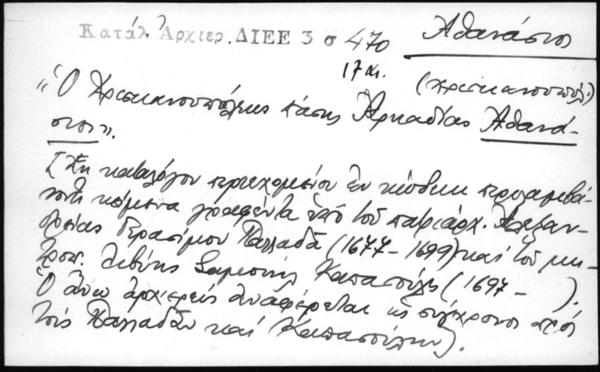 Κατάλ. Ἀρχιερ. ΔΙΕΕ 3 σ 470 Ἀθανάσιος
17 αἰ. (Χριστιανουπόλ.)
"Ὁ Χριστιανουπόλεως πάσης Ἀρκαδίας Ἀθανά-
σιος".
[Ἐκ καταλόγου περιεχομένου ἐν κώδικι περιλαμβά-
νοντι κείμενα γραφέντα ὑπό τοῦ πατριάρχ. Ἀλεξαν-
δρείας Γερασίμου Παλλαδᾶ (1677-1699) καί τοῦ μη-
τροπ. Λιβύης Σαμουήλ Καπασούλη (1697- ).
Ὁ ἄνω ἀρχιερεύς ἀναφέρεται ὡς σύγχρονος πρός
τούς Παλλαδᾶν καί Καπασούλην].